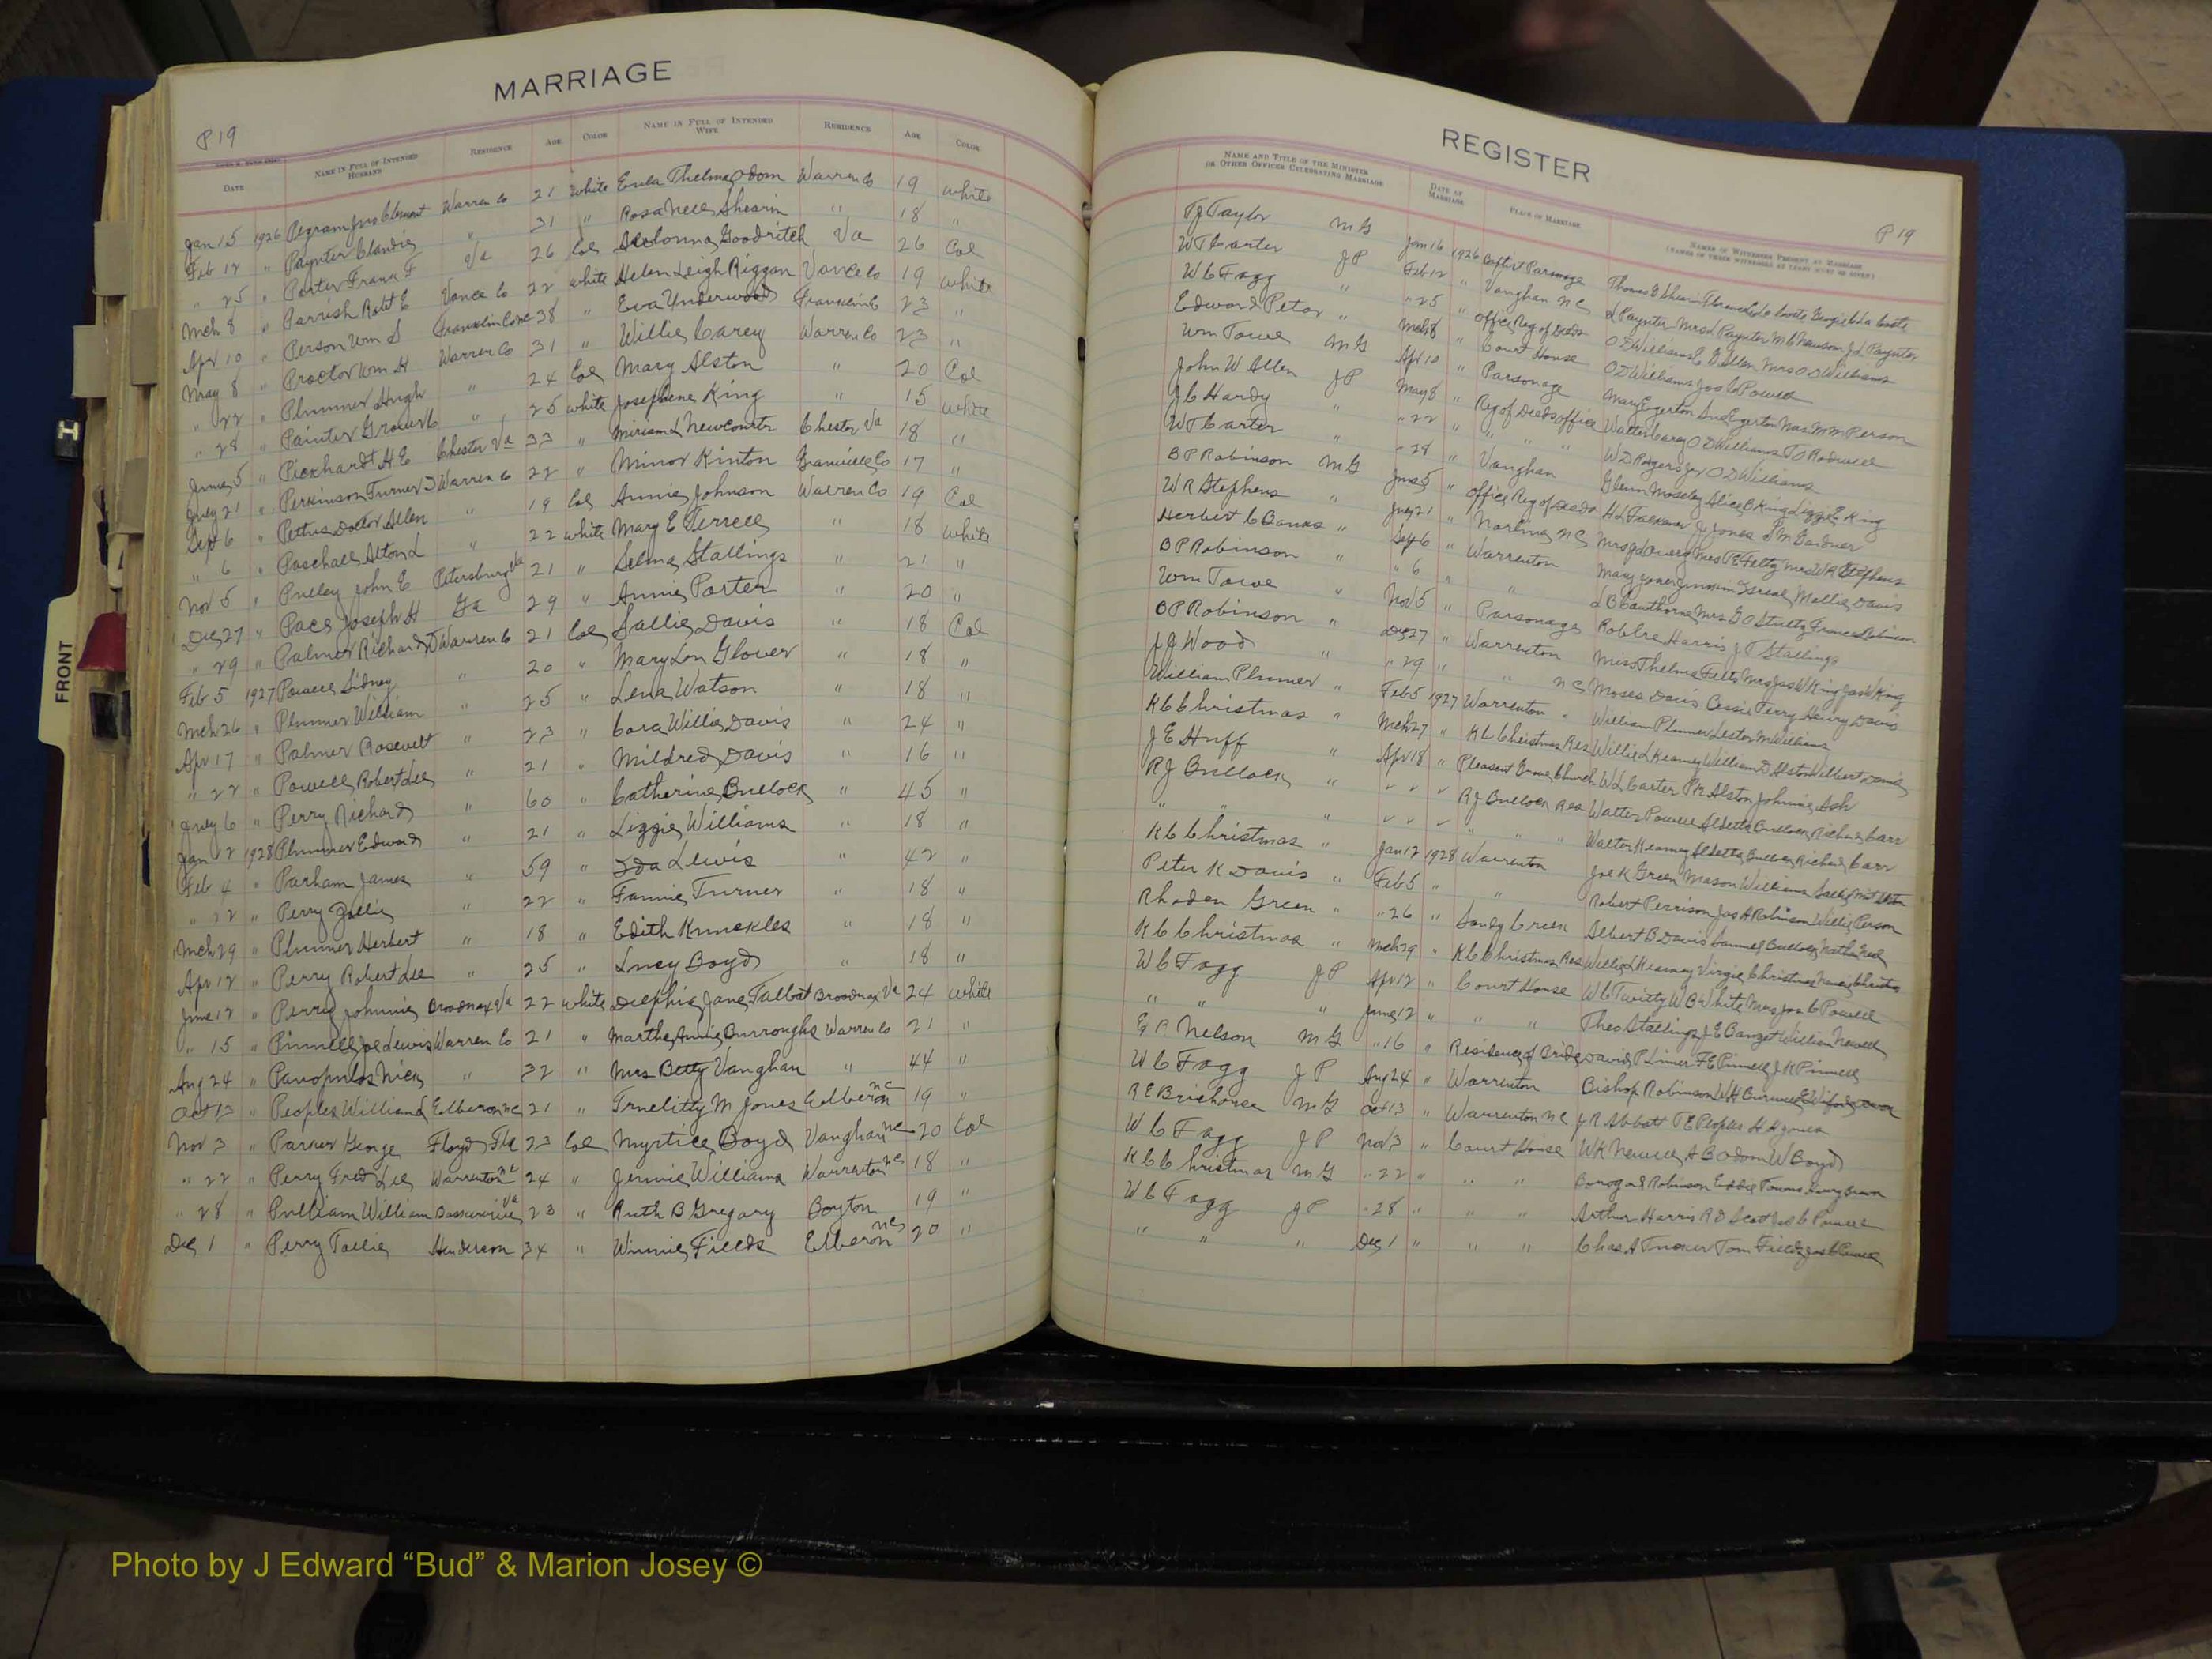 MARRIAGE
P 19
DATE NAME IN FULL OF INTENDED HUSBAND RESIDENCE AGE COLOR NAME IN FULL OF INTENDED WIFE RESIDENCE AGE COLOR
Jan 15 1926 Pegram Jno Clement Warren Co 21 white Eula Thelma Odom Warren Co 19 white
Feb 12 " Paynter Claudie " 31 " Rosa Nell Shearin " 18 "
" 25 " Porter Frank F Va 26 Col Goodritch Va 26 Col
Mch 8 " Parrish Robt E Vance Co 22 white Helen Leigh Riggan Vance Co 19 white
Apr 10 " Person Wm S Franklin Co 38 " Eva Underwood Franklin Co 23 "
May 8 " Proctor Wm H Warren Co 31 " Willie Carey Warren Co 23 "
" 22 " Plummer Hugh " 24 Col Mary Alston " 20 Col
" 28 " Painter Grover C " 25 white Josephene King " 15 white
June 5 " Pickhardt H E Chester Va 33 " Miriam L Newcomb Chester Va 18 "
July 21 " Perkinson Turner D Warren Co 22 " Minor Kinton Granville Co 17 "
Sept 6 " Pettus Allen " 19 Col Annie Johnson Warren Co 19 Col
" 6 " Paschall Alton L " 22 white Mary E Terrell " 18 white
Nov 5 " John E Petersburg Va 21 " Selma Stallings " 21 "
Dec 27 " Pace Joseph H Ga 29 " Annie Porter " 20 "
" 29 " Palmer Richard D Warren Co 21 Col Sallie Davis " 18 Col
Feb 5 1927 Powell Sidney " 20 " Mary Lou Glover " 18 "
Mch 26 " Plummer William " 25 " Lena Watson " 18 "
Apr 17 " Palmer Rosevelt " 23 " Cora Willie Davis " 24 "
" 22 " Powell Robert Lee " 21 " Mildred Davis " 16 "
July 6 " Perry Richard " 60 " Catherine Bullock " 45 "
Jan 12 1928 Plummer Edward " 21 " Lizzie Williams " 18 "
Feb 4 " Parham James " 59 " Ida Lewis " 42 "
" 22 " Perry " 22 " Fannie Turner " 18 "
Mch 29 " Plummer Herbert " 18 " Edith Knuckles " 18 "
Apr 12 " Perry Robert Lee " 25 " Lucy Boyd " 18 "
June 12 " Perry Johnnie Broadnax Va 22 white Delphia Jane Talbot Broadnax Va 24 white
" 15 " Pinnell Joe Lewis Warren Co 21 " Martha Annie Burroughs Warren Co 21 "
Aug 24 " Panopulos Nick " 32 " Mrs Betty Vaughan " 44 "
Oct 13 " Peoples William L Elberon NC 21 " M Jones Elberon NC 19 "
Nov 3 " Parker George Floyd Fla 23 Col Myrtice Boyd Vaughan NC 20 Col
" 22 " Perry Fred Lee Warrenton NC 24 " Jennie Williams Warrenton NC 18 "
" 28 " Pulliam William Va 23 " Ruth B Gregory Boyton 19 "
Dec 1 " Perry Tollie Henderson 34 " Winnie Fields Elberon NC 20 "
REGISTER
P 19
NAME AND TITLE OF THE MINISTER OR OTHER OFFICER CELEBRATING MARRIAGE DATE OF MARRIAGE PLACE OF MARRIAGE NAMES OF WITNESSES PRESENT AT MARRIAGE
TJ Taylor MG Jan 16 1926 Baptist Parsonage Thomas E Shearin
WT Carter JP Feb 12 " Vaughan NC L Paynter Mrs L Paynter M C Newsom J L Paynter
WC Fagg " " 25 " office Reg of Deeds O D Williams E G Allen Mrs O D Williams
Edward Peter " Mch 8 " Court House O D Williams Jos C Powell
Wm Towe MG Apr 10 " Parsonage Mary Egerton Egerton Mrs M M Person
John W Allen JP May 8 " Reg of Deeds office Walter Carey O D Williams T O Rodwell
JC Hardy " " 22 " " " W D Rodgers Jr O D Williams
WT Carter " " 28 " Vaughan Glenn Moseley Alice B King Lizzie E King
B P Robinson MG June 5 " office Reg of Deeds H L Falkener J J Jones S M Gardner
W R Stephens " July 21 " Norlina NC Mrs W R Stephens
Herbert C Banks " Sept 6 " Warrenton Mary Jones Mollie Davis
B P Robinson " " 6 " " L B Cawthorne Mrs G O Stultz Frances Robinson
Wm Towe " Nov 5 " Parsonage Harris J T Stallings
B P Robinson " Dec 27 " Warrenton Miss Thelma Felts Mrs Jas W King Jas W King
J J Wood " " 29 " " NC Moses Davis Cessie Terry Henry Davis
William Plumer " Feb 5 1927 Warrenton " William Plummer Lester M Williams
K C Christmas " Mch 27 " K C Christmas Res Willie L Kearney William D Alston Wilbert Davis
J E Huff " Apr 18 " Pleasant Grove Church W L Carter P R Alston Johnnie Ash
R J Bullock " " " " R J Bullock Res Walter Powell Bullock Richard Carr
" " " " " " " " " Walter Kearney Bullock Richard Carr
K C Christmas " Jan 12 1928 Warrenton Joe K Green Mason Williams
Peter K Davis " Feb 5 " " Robert Perrison Jas A Robinson Willie Person
Rhoden Green " " 26 " Sandy Creek Albert B Davis Samuel Bullock
K C Christmas " Mch 29 " K C Christmas Res Willie L Kearney Virgie Christmas
W C Fagg JP Apr 12 " Court House W C Twitty W B White Mrs Jos C Powell
" " " June 12 " " " Theo Stallings J E Banzet William Newell
E R Nelson MG " 16 " Residence of Bride David P Limer F E Pinnell J K Pinnell
W C Fagg JP Aug 24 " Warrenton Bishop Robinson W H Burwell
R E Brickhouse MG Oct 13 " Warrenton NC J R Abbott T E Peoples H H Jones
W C Fagg JP Nov 3 " Court House W K Newell A B Odom W Boyd
K C Christmas MG " 22 " " " Robinson Eddie Towns
W C Fagg JP " 28 " " " Arthur Harris R D Scott Jos C Powell
" " " Dec 1 " " " Chas A Tucker Tom Fields Jos C Powell
FRONT
Photo by J Edward “Bud” & Marion Josey ©